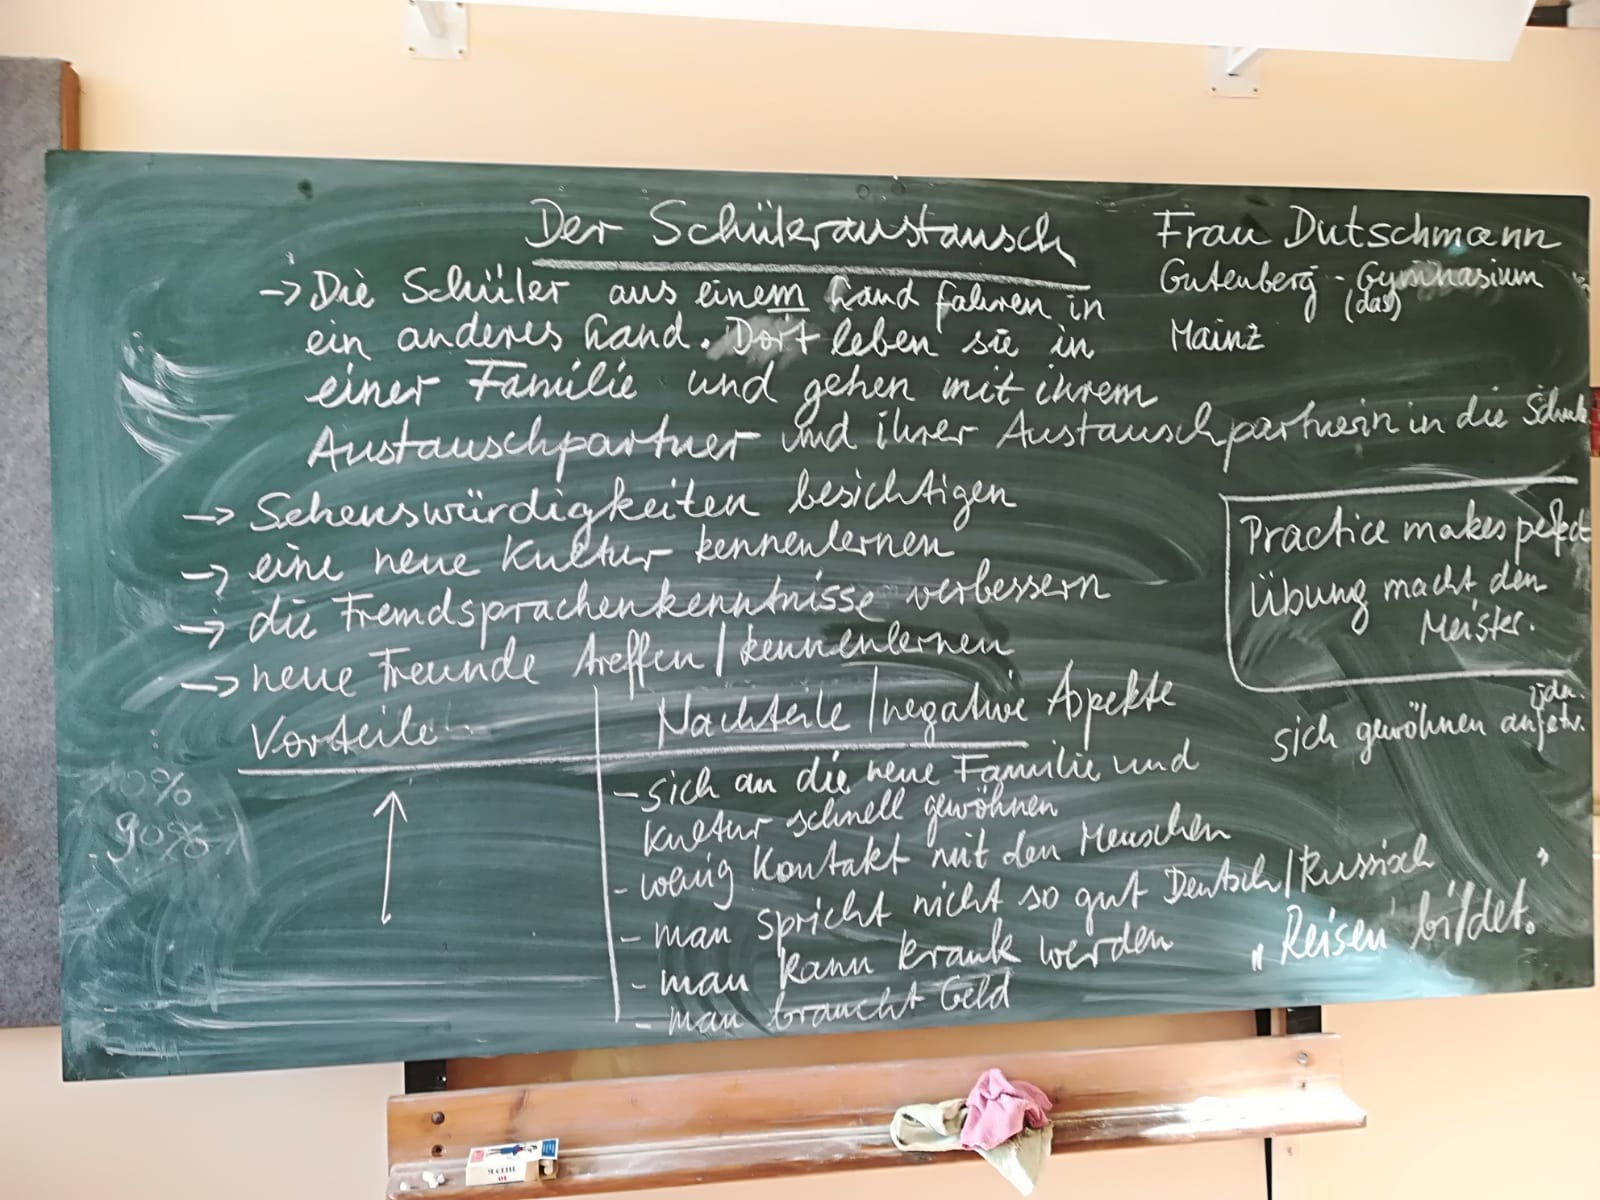 Der Schüleraustausch
→ Die Schüler aus einem Land fahren in
ein anderes Land. Dort leben sie in
einer Familie und gehen mit ihrem
Austauschpartner und ihrer Austauschpartnerin in die Schule
→ Sehenswürdigkeiten besichtigen
→ eine neue Kultur kennenlernen
→ die Fremdsprachenkenntnisse verbessern
→ neue Freunde treffen / kennenlernen
Vorteile
10%
90%
Nachteile / negative Aspekte
- sich an die neue Familie und
Kultur schnell gewöhnen
- wenig Kontakt mit den Menschen
- man spricht nicht so gut Deutsch / Russisch
- man kann krank werden
- man braucht Geld
Frau Dutschmann
Gutenberg - Gymnasium
(das)
Mainz
Practice makes pefect
Übung macht den
Meister.
jdn.
sich gewöhnen an etw.
„Reisen bildet.“